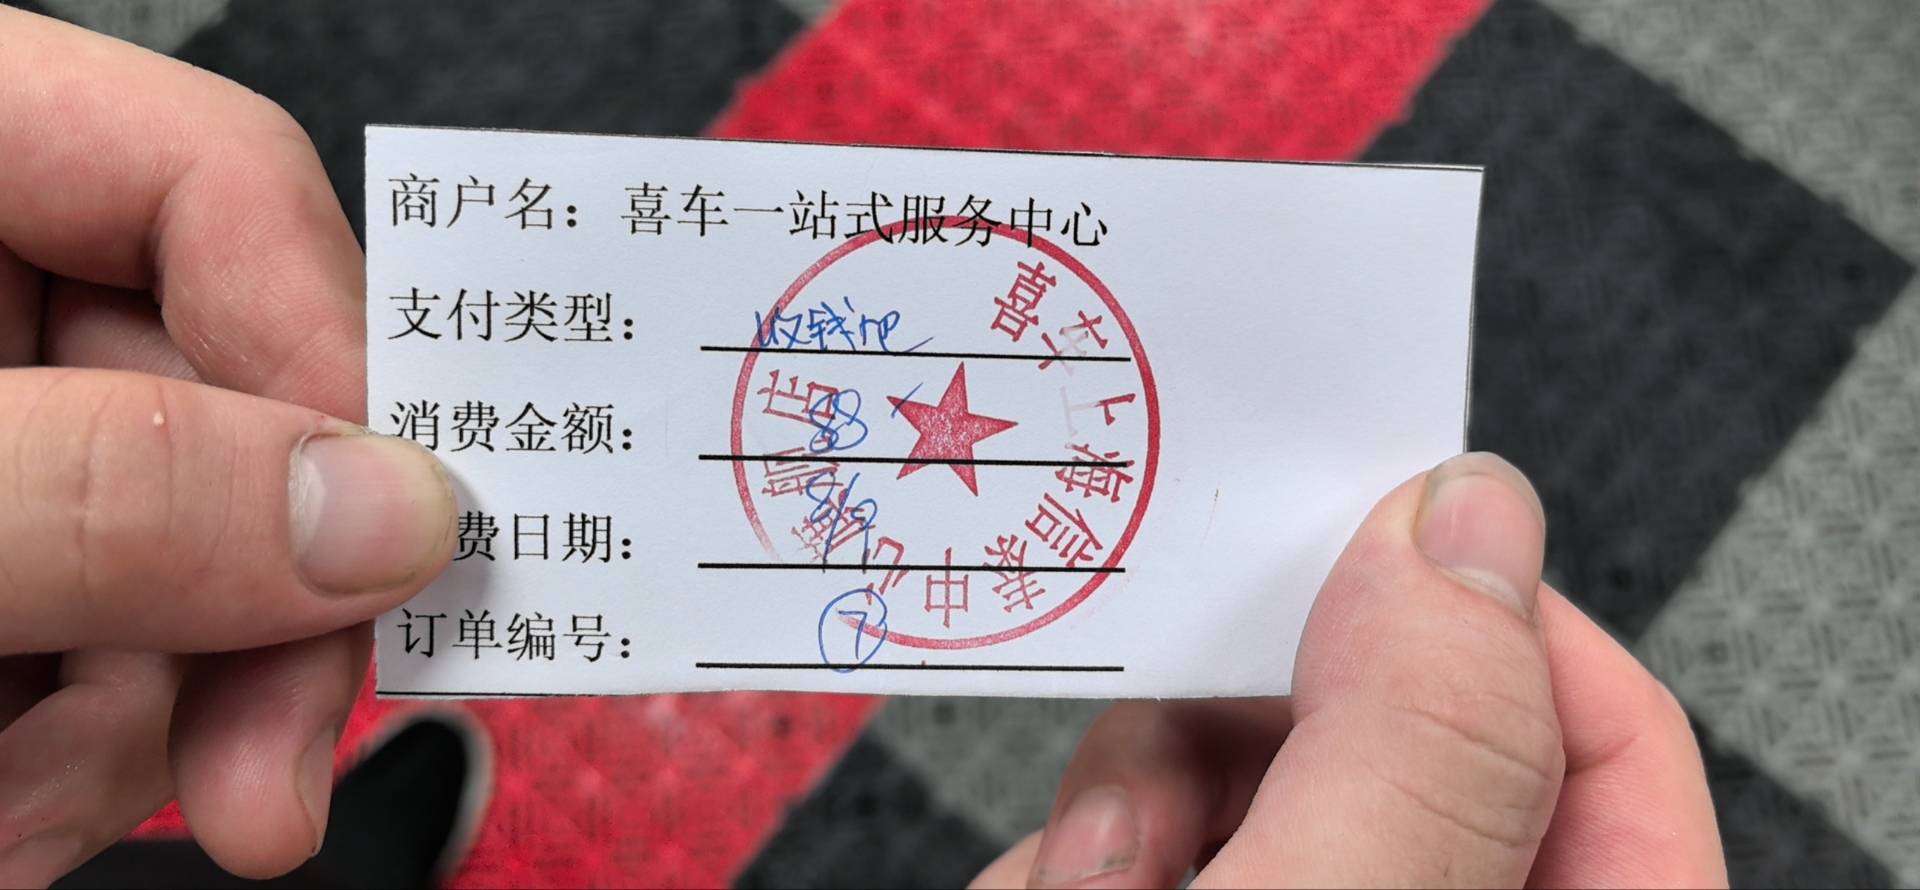 商户名：喜车一站式服务中心
支付类型：收钱吧
消费金额：88
费日期：8/9
订单编号：7
喜车上海信泰中心旗舰店